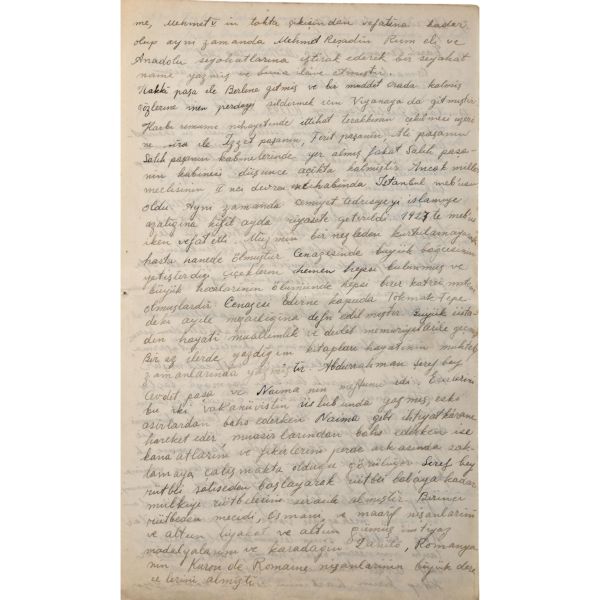 me, Mehmet V in tahta çıkışından vefatına kadar
olup aynı zamanda Mehmet Reşadın Rum eli ve
Anadolu siyahatlarına iştirak ederek bir seyahat
name yazmış ve buna ilave etmiştir.
Hakkı paşa ile Berline gitmiş ve bir müddet orada kalmış
gözlerine inen perdeyi aldırmak için Viyanaya da gitmiştir.
Harbi umumi nihayetinde ittihat terakkinin çekilmesi üzeri
ne sıra ile İzzet paşanın, Tevfik paşanın, Ali paşanın
Salih paşanın kabinelerinde yer almış fakat Salih paşa
nın kabinesi düşünce açıkta kalmıştır. Ancak millet
meclisinin 2 nci devre intihabında İstanbul meb'usu
oldu. Aynı zamanda cemiyet tedrisyeyi islamiye
azalığına
iken vefat etti. bir nezleden kurtulamayarak
hasta hanede ölmüştür. Cenazesinde büyük bahçesinin
yetiştirdiği çiçeklerin hemen hepsi bulunmuş ve
büyük hocalarının önünde hepsi birer katre
olmuşlardır. Cenazesi Edirne kapıda Tokmak Tepe
deki ayile mezarlığına defn edilmiştir. Büyük üsta-
dın hayatı muallimlik ve devlet memuriyetlerile geçmiş
Bir az ilerde yazdığım kitapları hayatının muhtelif
zamanlarında yazmıştır. Abdurrahman Şeref bey
Cevdet paşa ve Naima nın meftunu idi. Eserlerini
bu iki vakanüvistin üslubunda yazmış, eski
asırlardan bahs ederken Naima gibi ihtiyatkârane
hareket eder, muasırlarından bahs ederken ise
kanaatlarını ve fikirlerini perde arkasında sak-
lamaya çalışmakta olduğu görülüyor. Şeref bey
rütbei salisaden başlayarak rütbei balaya kadar
mülkiye rütbelerini sırasile almıştır. Birinci
rütbeden mecidi, Osmani ve maarif nişanlarını
ve altun liyakat ve altun gümüş imtiyaz
madalyalarını ve karadağın Danilo, Romanya
nın Kuron de Romanie nişanlarının büyük dere
ce lerini almıştır.